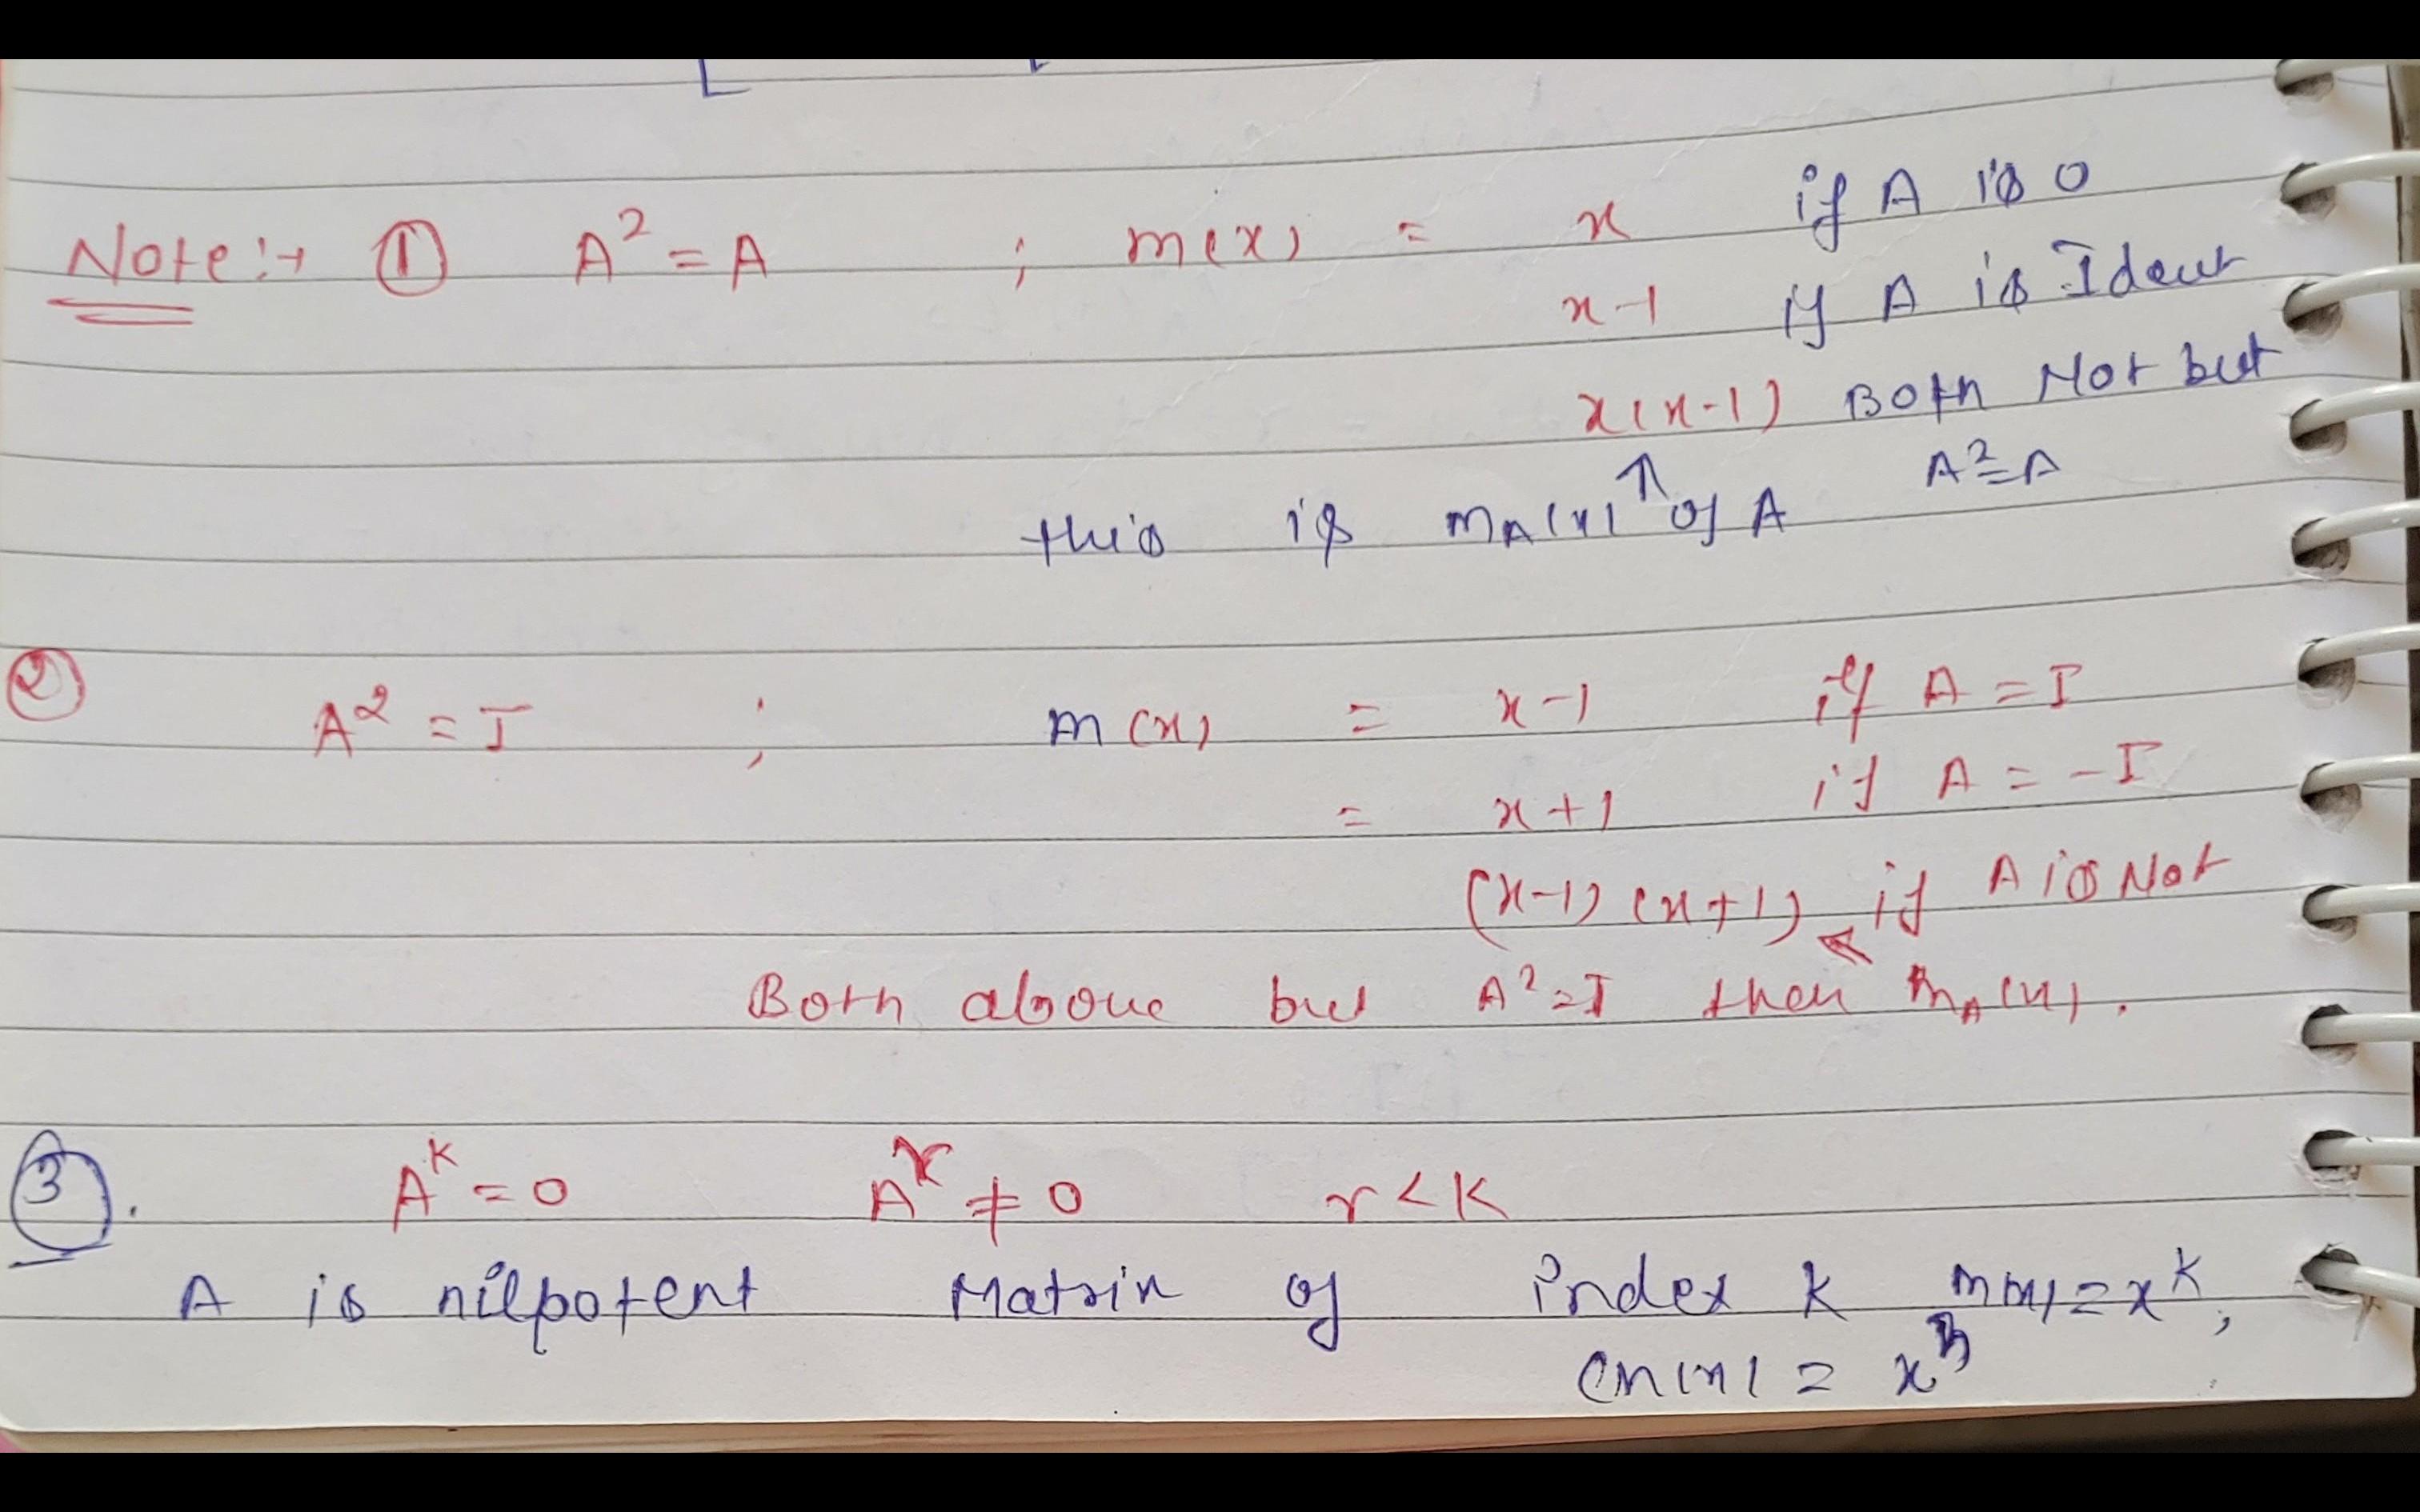 Note:→ ① A² = A ; m(x) = x if A is 0
x-1 if A is Ident
x(x-1) Both Not but
A²=A
this is m_A(x) ↑ of A
② A² = I ; m(x) = x-1 if A = I
= x+1 if A = -I
(x-1) (x+1) if A is Not
Both above but A²=I then m_A(x).
③. A^k = 0 A^r ≠ 0 r < k
A is nilpotent Matrix of index k m(x) = x^k,
= x^n